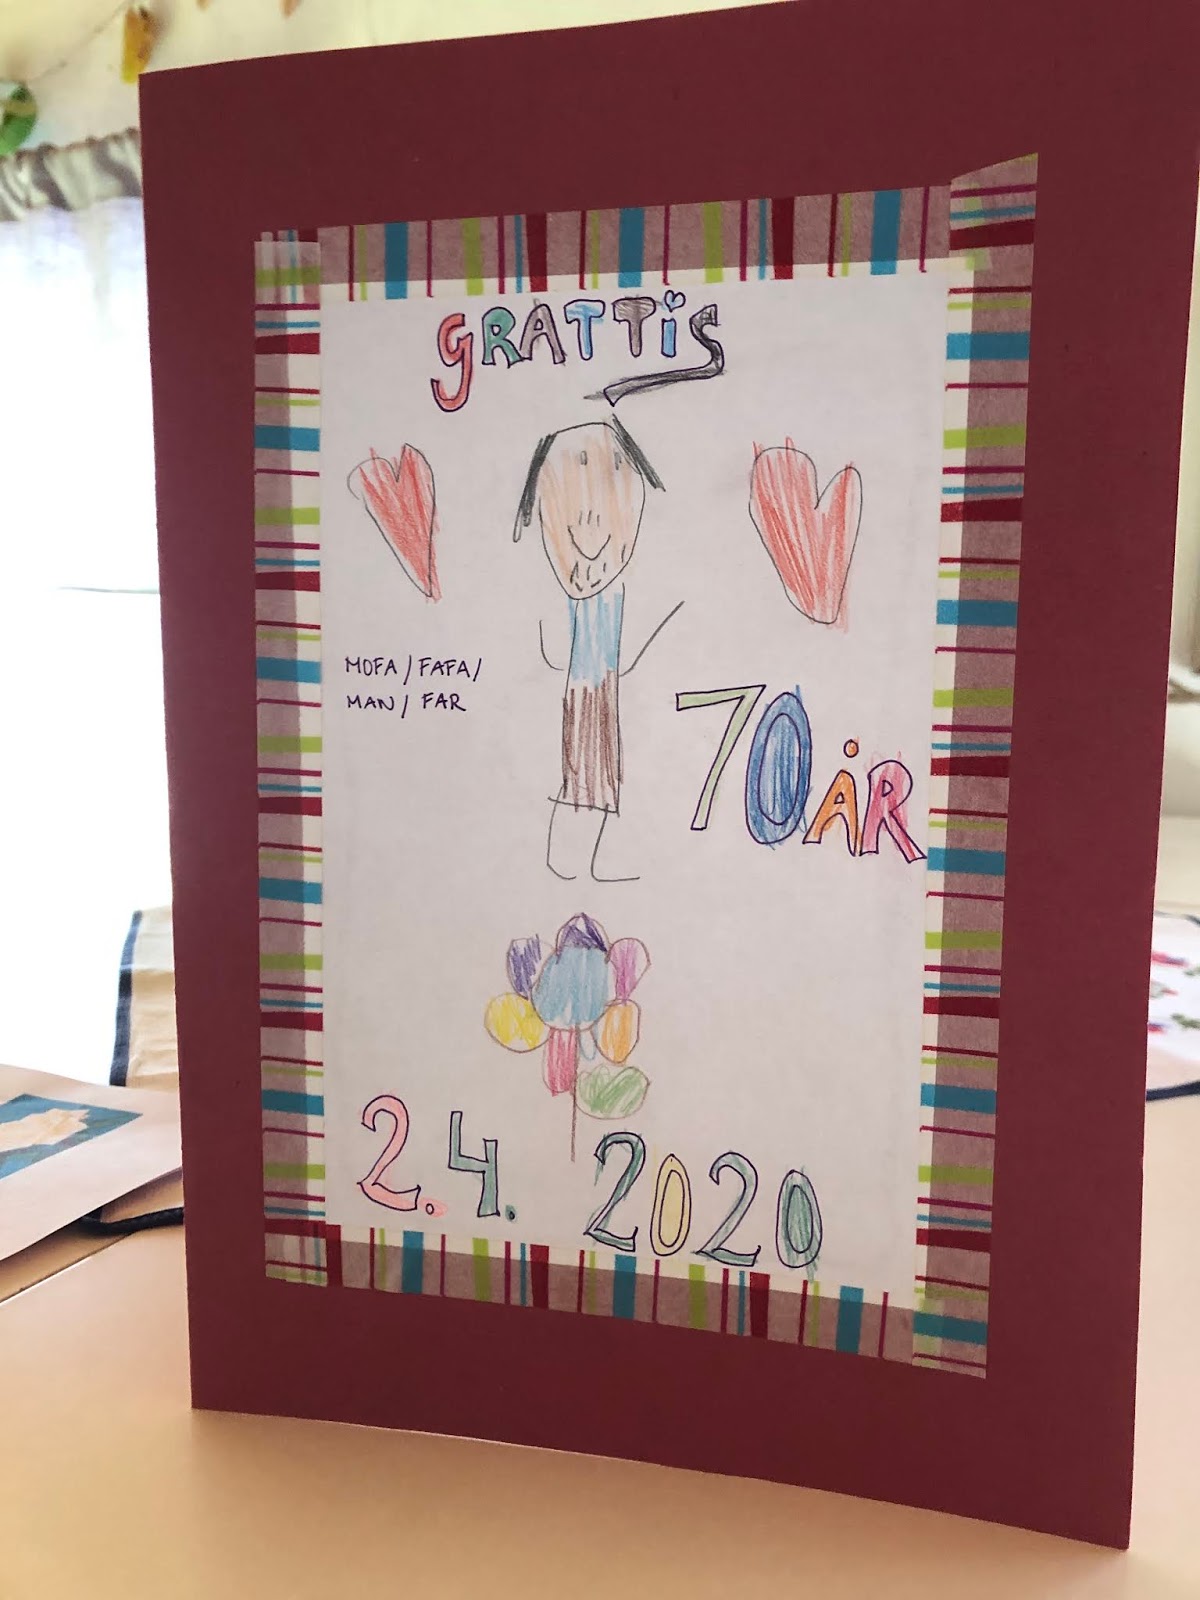 GRATTiS
MOFA / FAFA /
MAN / FAR
70 ÅR
2.4. 2020